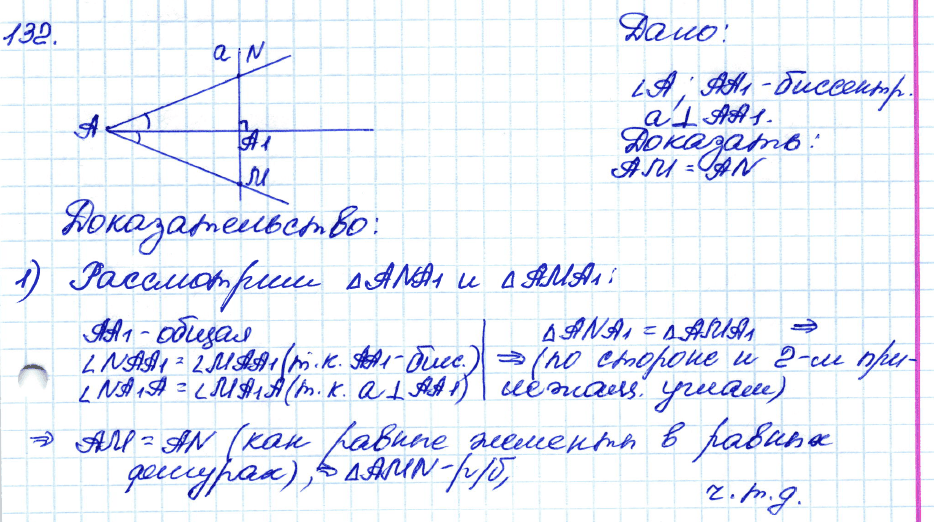 132.
a N
A
A1
M
Дано:
∠A; AA1 - биссектр.
a ⊥ AA1.
Доказать:
AM = AN
Доказательство:
1) Рассмотрим △ANA1 и △AMA1:
AA1 - общая
∠NAA1 = ∠MAA1 (т.к. AA1 - бис.)
∠NA1A = ∠MA1A (т.к. a ⊥ AA1)
△ANA1 = △AMA1 ⇒
⇒ (по стороне и 2-м при-
лежащ. углам)
⇒ AM = AN (как равные элементы в равных
фигурах), ⇒ △AMN - р/б,
ч.т.д.